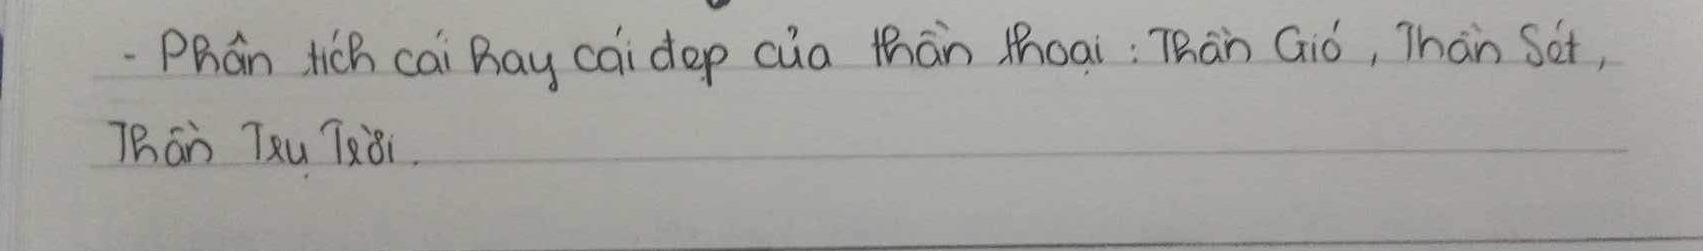 - Phân tích cái hay cái đẹp của thần thoại : Thần Gió, Thần Sét,
Thần Trụ Trời.